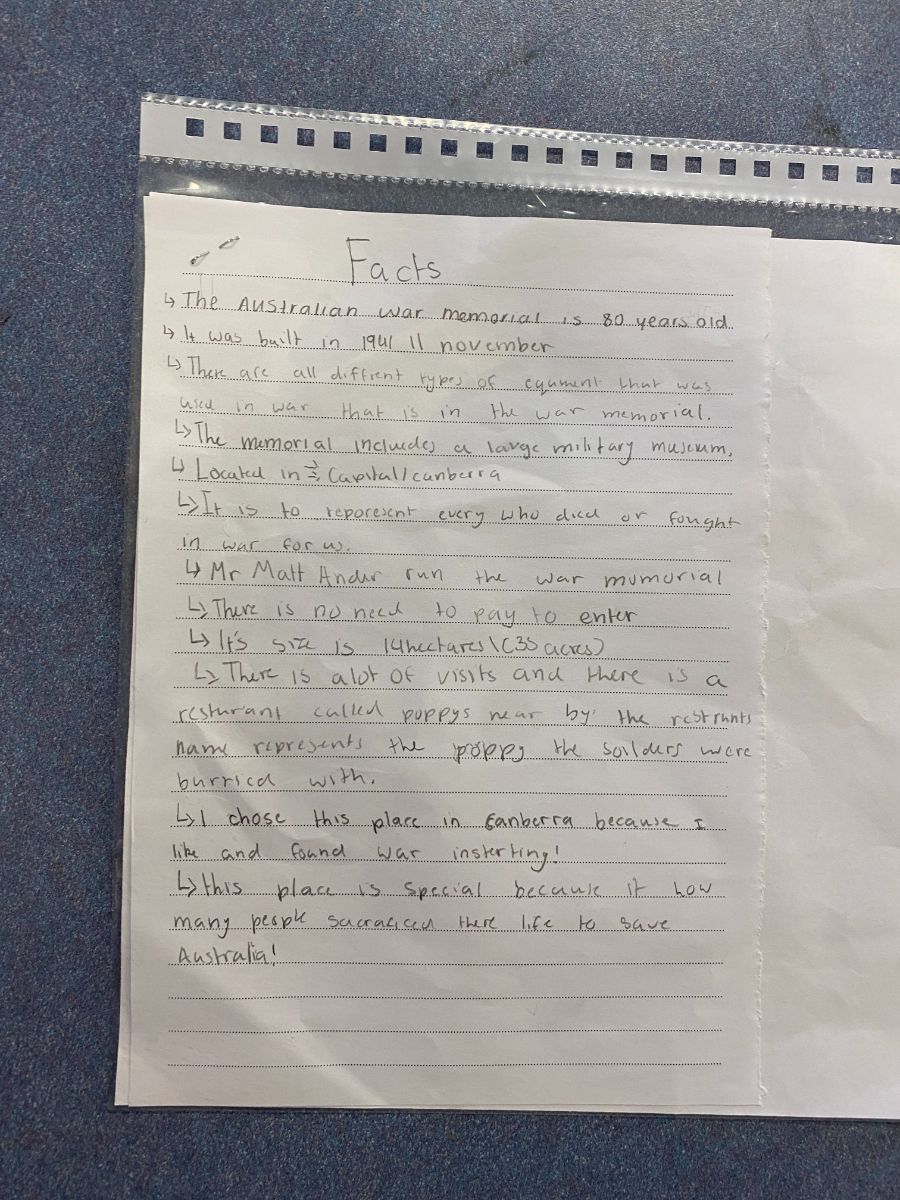 Facts
↳ The Australian war memorial is 80 years old
↳ It was built in 1941 11 november
↳ There are all diffrent types of equment that was
used in war that is in the war memorial.
↳ The memorial includes a large military museum.
↳ Located in Capital/canberra
↳ It is to reporesent every who died or fought
in war for us.
↳ Mr Matt Ander run the war mumorial
↳ There is no need to pay to enter
↳ It's size is 14hectares\(35 acres)
↳ There is alot of visits and there is a
resturant called poppys near by. the restrunts
name represents the poppy the soilders were
burried with.
↳ I chose this place in Canberra because I
like and found war insterting!
↳ this place is special because it how
many people sacraficed there life to save
Australia!